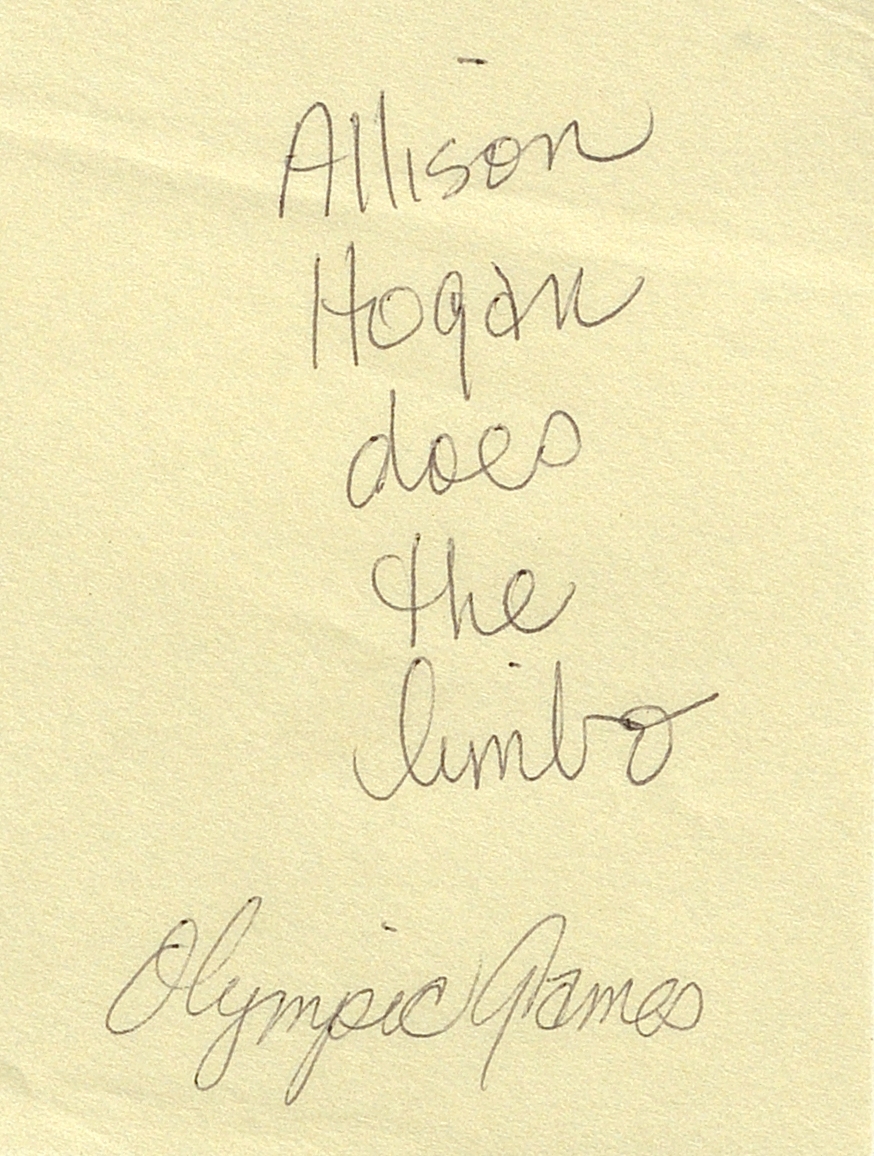 Allison
Hogan
does
the
limbo
Olympic Games